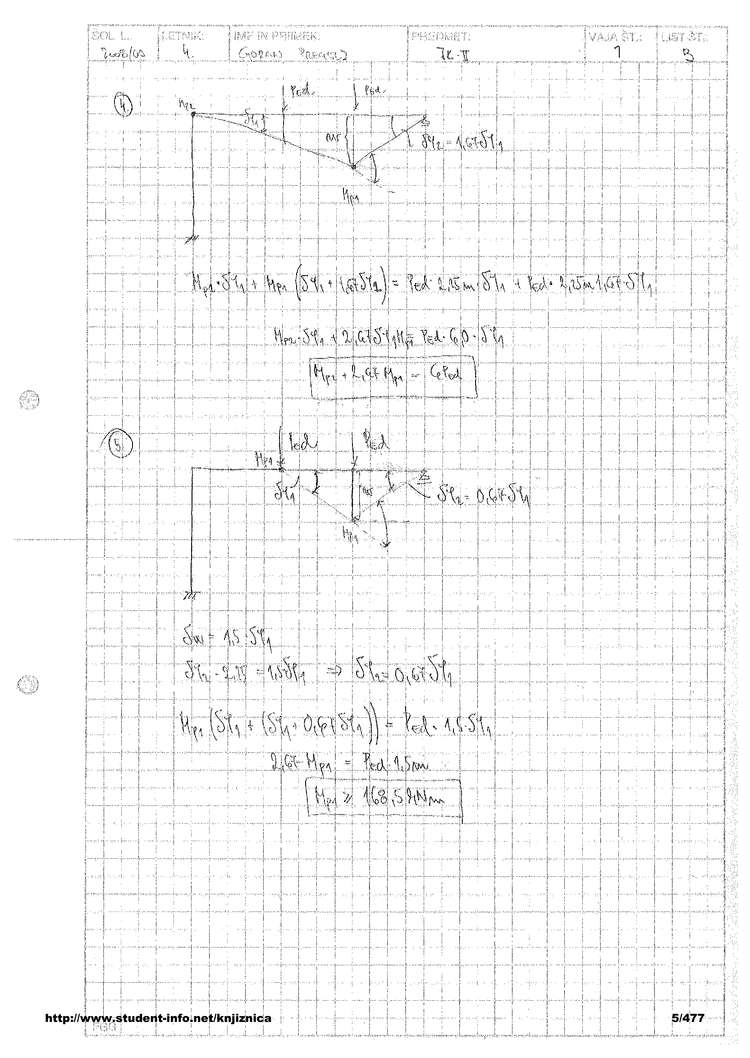 ŠOL. L.: LETNIK: IME IN PRIIMEK: PREDMET: VAJA ŠT.: LIST ŠT.:
2008/09 4. GORAN JK-II 1 3
4.
Mp2 PEd PEd
δφ1 δφ2 = 1,67δφ1
Mp1
Mp2·δφ1 + Mp1 (δφ1 + 1,67δφ1) = PEd·2,25m·δφ1 + PEd·2,25m·1,67·δφ1
Mp2·δφ1 + 2,67δφ1Mp1 = PEd·6,0·δφ1
Mp2 + 2,67 Mp1 = 6PEd
5.
PEd PEd
Mp1
δφ1 δφ2 = 0,67δφ1
Mp1
δw = 1,5·δφ1
δφ2·2,25 = 1,5δφ1 ⇒ δφ2 = 0,67δφ1
Mp1 (δφ1 + (δφ1 + 0,67δφ1)) = PEd·1,5·δφ1
2,67·Mp1 = PEd·1,5m
Mp1 ≥ 168,5kNm
http://www.student-info.net/knjiznica 5/477
FGG